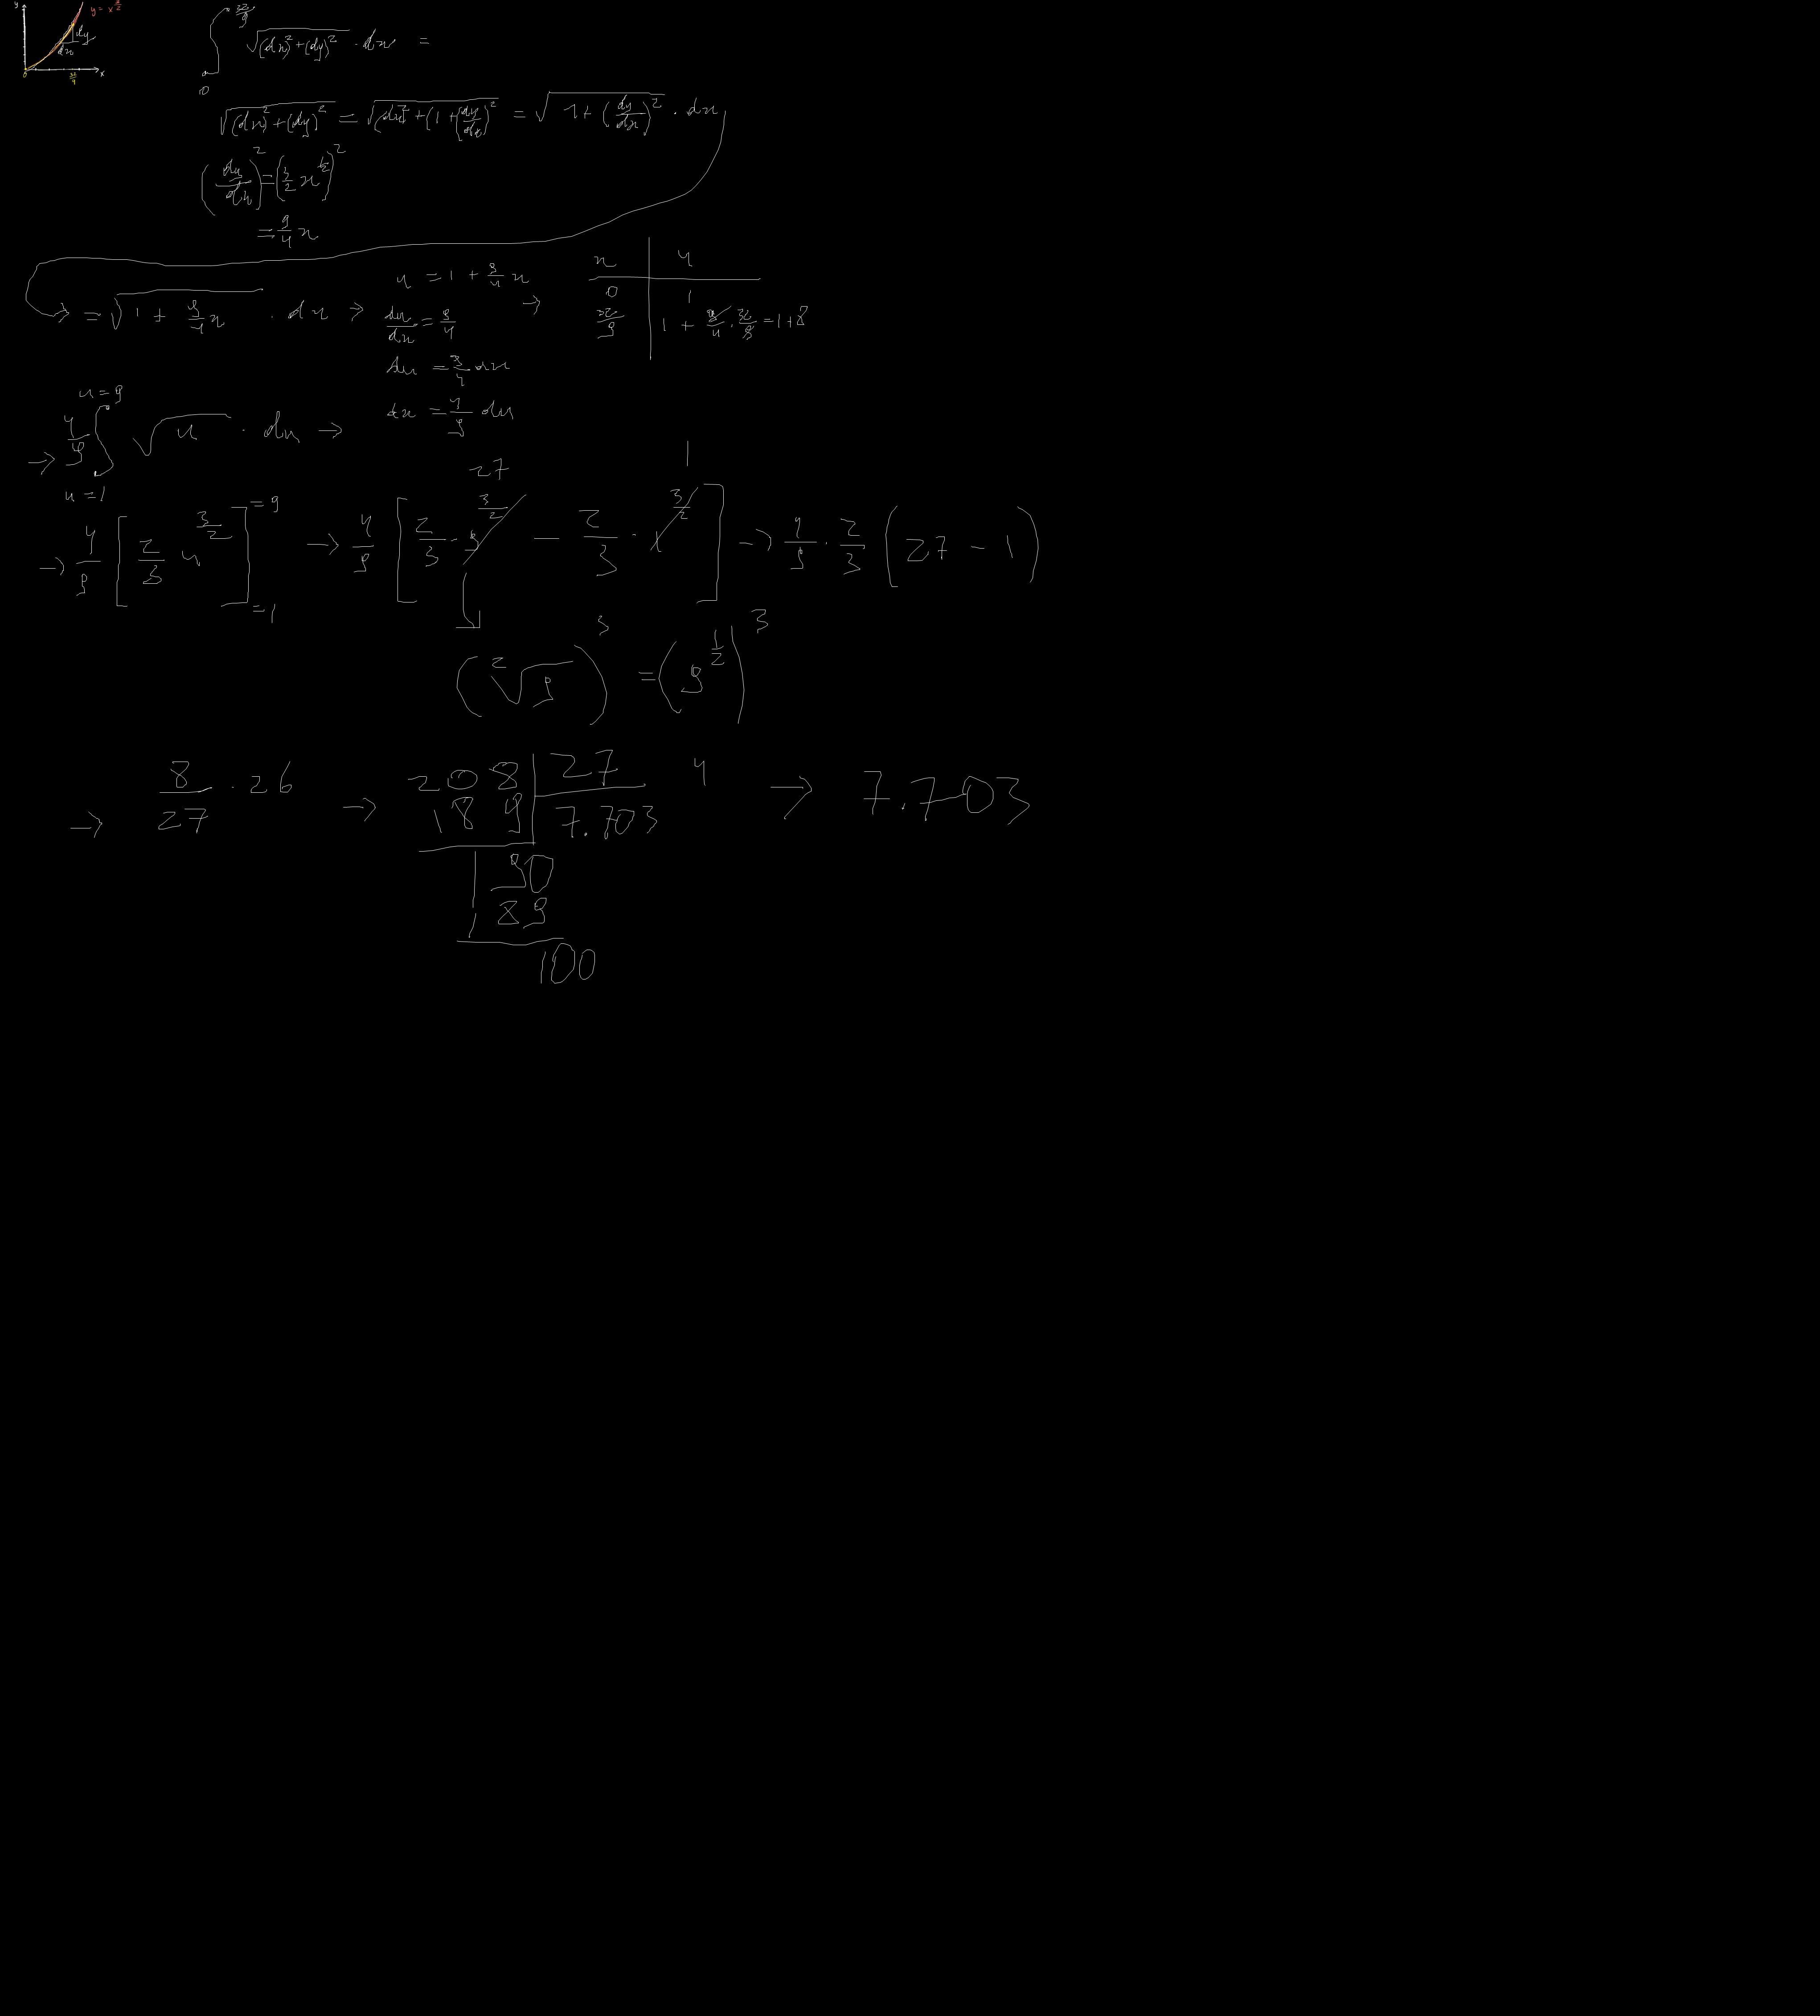 y
y = x^{3/2}
dy
dx
0
32/9
x
∫_0^{32/9} √((dx)^2+(dy)^2) · dx =
√((dx)^2+(dy)^2) = √((dx)^2+(1+(dy/dx)^2 = √(1+(dy/dx)^2) · dx
(dy/dx)^2 = (3/2 x^{1/2})^2
= 9/4 x
→ = √(1 + 9/4 x) · dx →
u = 1 + 9/4 x →
du/dx = 9/4
du = 9/4 dx
dx = 4/9 du
x | u
0 | 1
32/9 | 1 + 9/4 · 32/9 = 1+8
→ 4/9 ∫_{u=1}^{u=9} √u · du →
→ 4/9 [2/3 u^{3/2}]_{=1}^{=9} → 4/9 [2/3 · 9^{3/2} - 2/3 · 1^{3/2}] → 4/9 · 2/3 (27 - 1)
27
1
(²√9)^3 = (9^{1/2})^3
→ 8/27 · 26 → 208 | 27 4 → 7.703
189 | 7.703
190
189
100